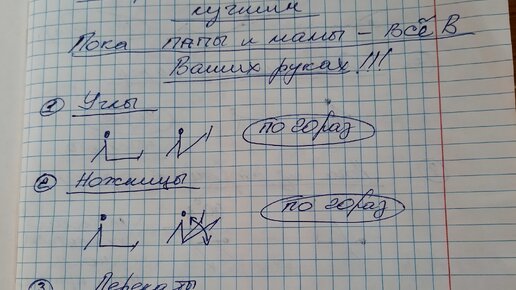 лучшим
Пока папы и мамы – всё в
Ваших руках!!!
① Углы
по 20 раз
② Ножницы
по 20 раз
③ Перекаты